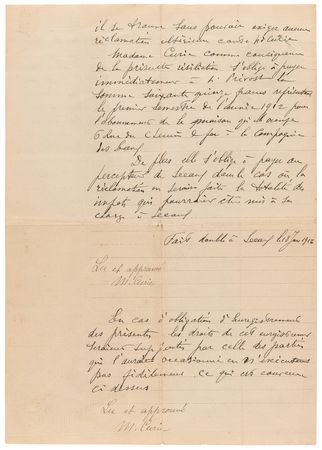 il se trouve sans pouvoir exiger aucune
réclamation ultérieure contre
Madame Curie comme conséquence
de la présente résiliation s'oblige à payer
immédiatement à L. Prévost la
somme soixante quinze francs représentant
le premier semestre de l'année 1912 pour
l'abonnement de la maison qu'il occupe
6 rue du Chemin de fer à la Compagnie
des Eaux
De plus elle s'oblige à payer au
percepteur de Sceaux dans le cas où la
réclamation en serait faite la totalité des
impots qui pourraient etre mis à sa
charge à Sceaux
Fait double à Sceaux le 18 1912
Lu et approuvé
M. Curie
En cas d'obligation d'Enregistrement
des présentes les droits de cet enregistrement
seraient supportés par celle des parties
qui l'aurait occasionné en n'exécutant
pas fidèlement ce qui est convenu
ci dessus
Lu et approuvé
M. Curie